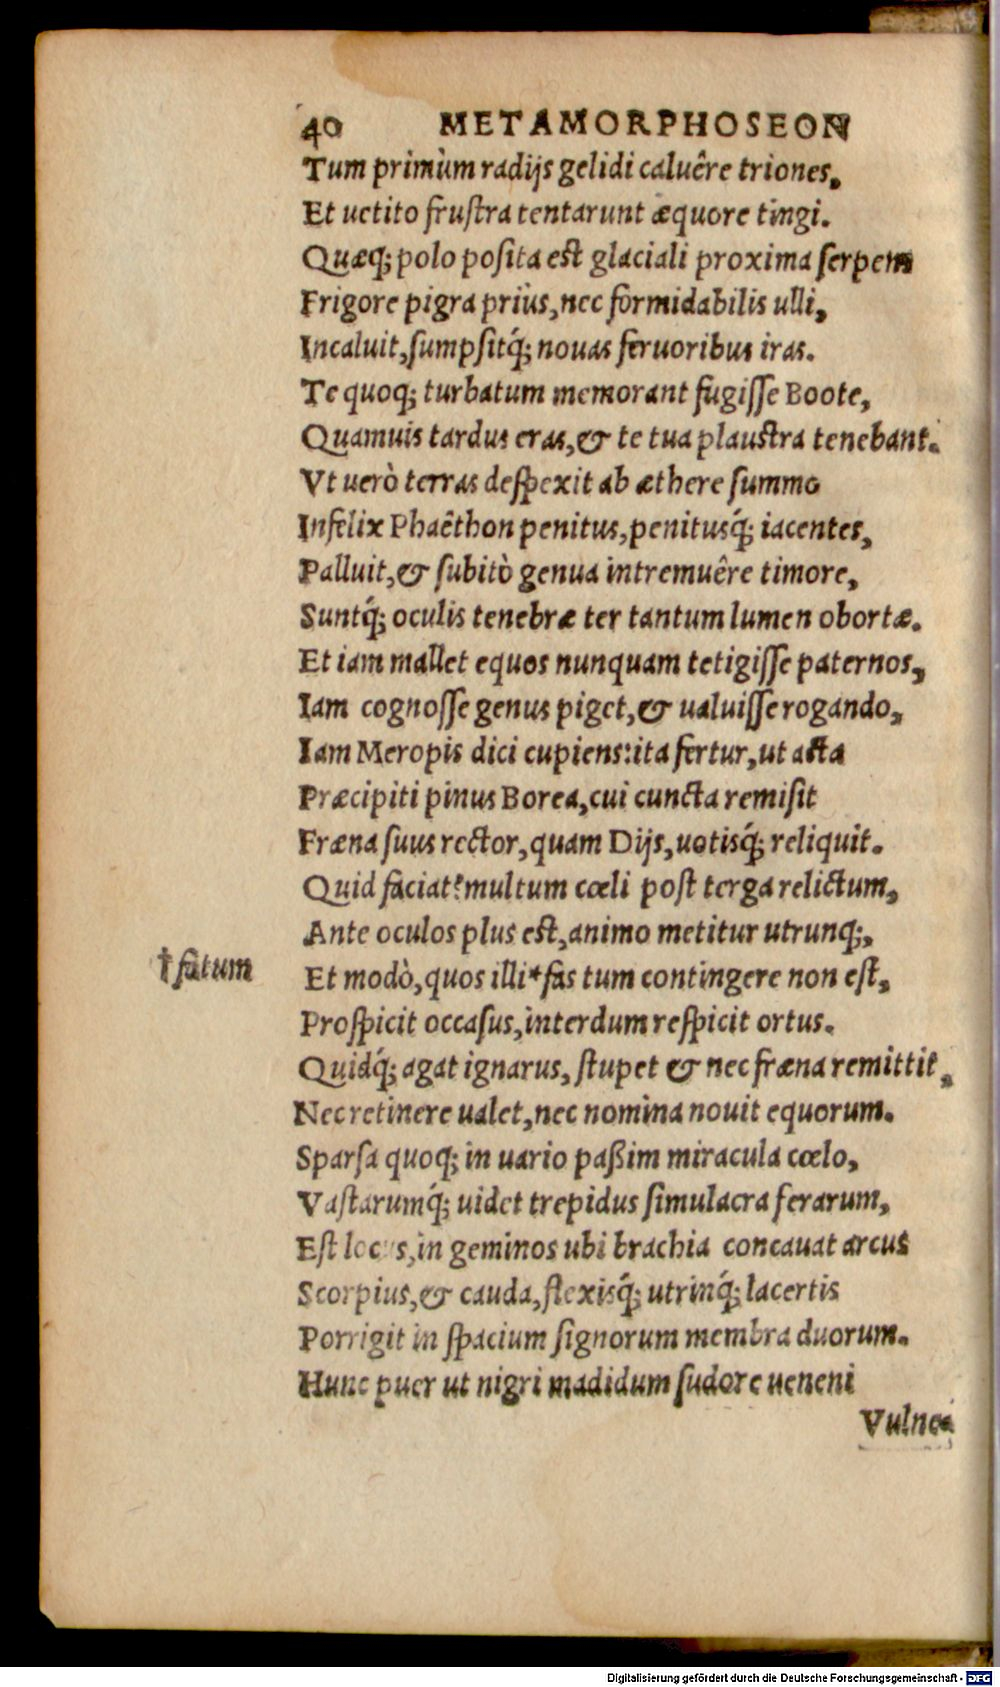 40 METAMORPHOSEON
Tum primùm radijs gelidi caluêre triones,
Et uetito frustra tentarunt æquore tingi.
Quæq; polo posita est glaciali proxima serpens
Frigore pigra priùs, nec formidabilis ulli,
Incaluit, sumpsitq́; nouas feruoribus iras.
Te quoq; turbatum memorant fugisse Boote,
Quamuis tardus eras, & te tua plaustra tenebant.
Vt uerò terras despexit ab æthere summo
Infelix Phaêthon penitus, penitusq́; iacentes,
Palluit, & subitò genua intremuêre timore,
Suntq́; oculis tenebræ ter tantum lumen obortæ.
Et iam mallet equos nunquam tetigisse paternos,
Iam cognosse genus piget, & ualuisse rogando,
Iam Meropis dici cupiens: ita fertur, ut acta
Præcipiti pinus Borea, cui cuncta remisit
Fræna suus rector, quam Dijs, uotisq́; reliquit.
Quid faciat? multum cœli post terga relictum,
Ante oculos plus est, animo metitur utrunq;,
† fatum
Et modò, quos illi *fas tum contingere non est,
Prospicit occasus, interdum respicit ortus.
Quidq́; agat ignarus, stupet & nec fræna remittit,
Nec retinere ualet, nec nomina nouit equorum.
Sparsa quoq; in uario paßim miracula cœlo,
Vastarumq́; uidet trepidus simulacra ferarum,
Est locus, in geminos ubi brachia concauat arcus
Scorpius, & cauda, flexisq́; utrinq́; lacertis
Porrigit in spacium signorum membra duorum.
Hunc puer ut nigri madidum sudore ueneni
Vulnea
Digitalisierung gefördert durch die Deutsche Forschungsgemeinschaft - DFG